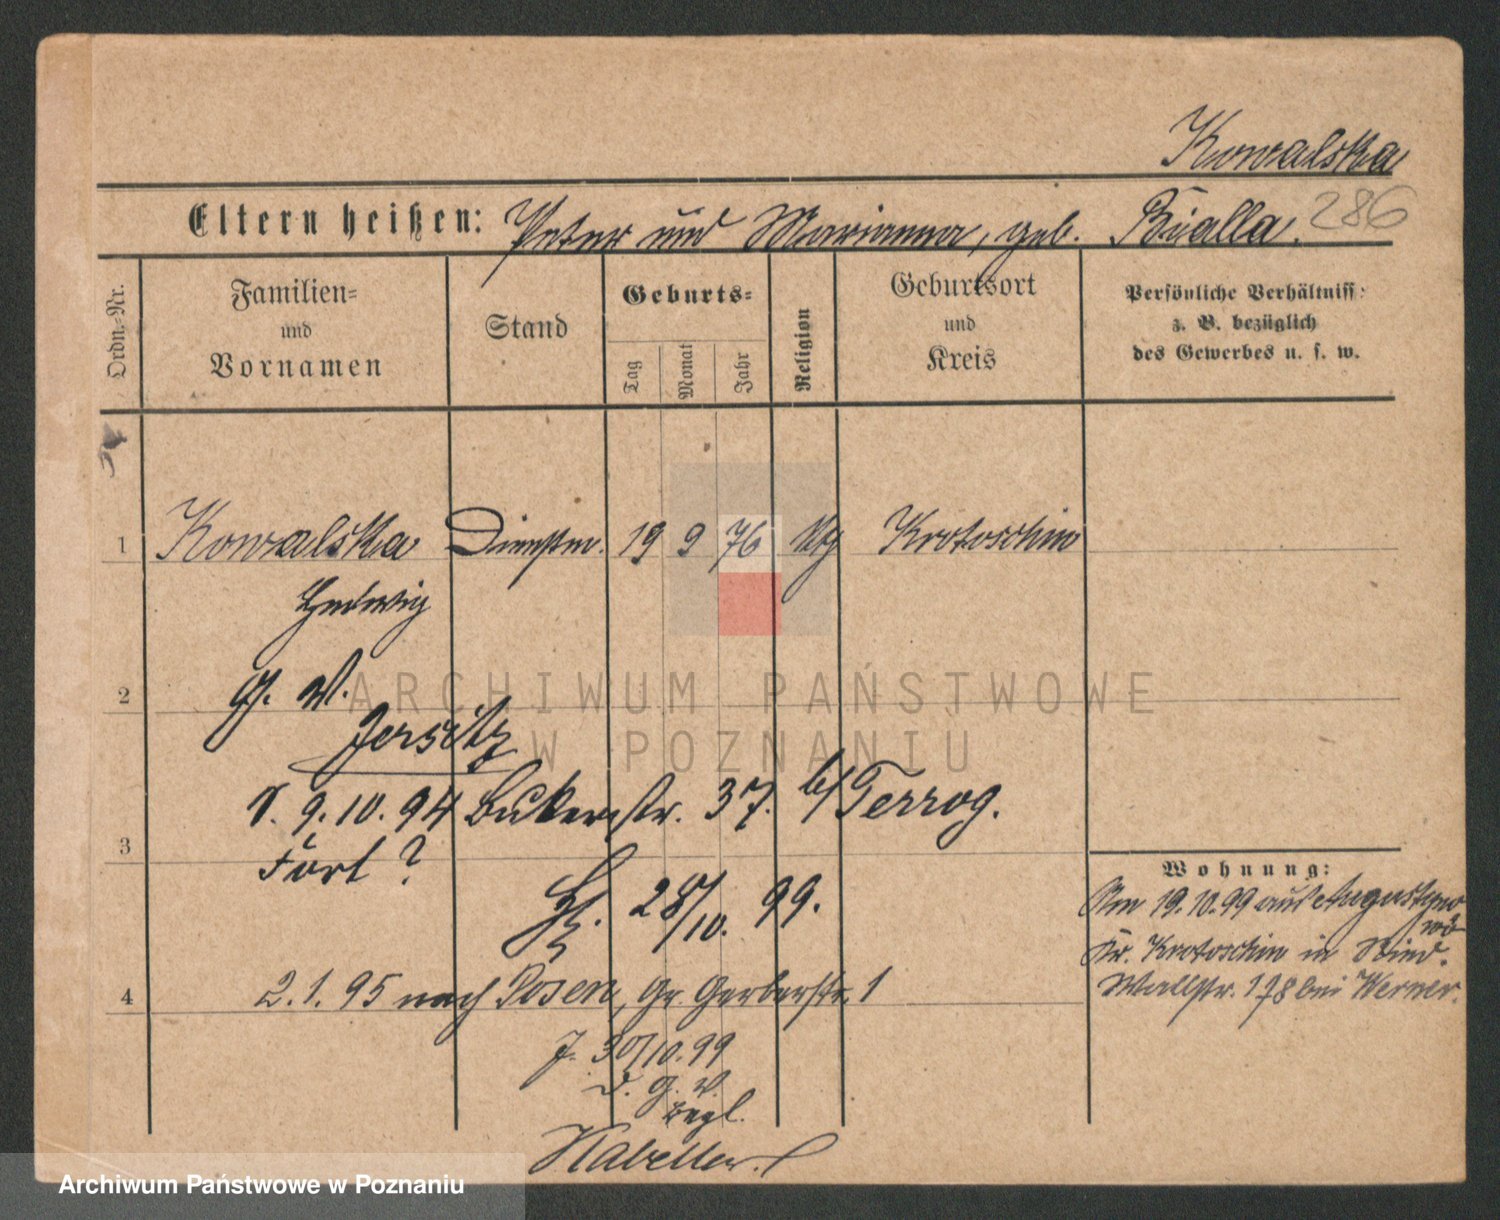 Kowalska
Eltern heißen: Peter und Marianna, geb. Bialla. 286
Ordn.-Nr.
Familien=
und
Vornamen
Stand
Geburts=
Tag
Monat
Jahr
Religion
Geburtsort
und
Kreis
Persönliche Verhältniss:
z. B. bezüglich
des Gewerbes u. s. w.
1 Kowalska Dienstm. 19 9 76 Kath Krotoschin
Hedwig
2 g. v.
Jersitz
v. 9.10.94 Bukerstr. 37. b/ Terrog.
3 Fort ?
28/10. 99.
Wohnung:
Am 19.10.99 aus Augustyno
wo
Kr. Krotoschin in Nied.
Wallstr. 178 bei Werner.
4 2.1.95 nach Posen, Gr Gerberstr. 1
J. 30/10.99
d. g. v.
ARCHIWUM PAŃSTWOWE
W POZNANIU
Archiwum Państwowe w Poznaniu